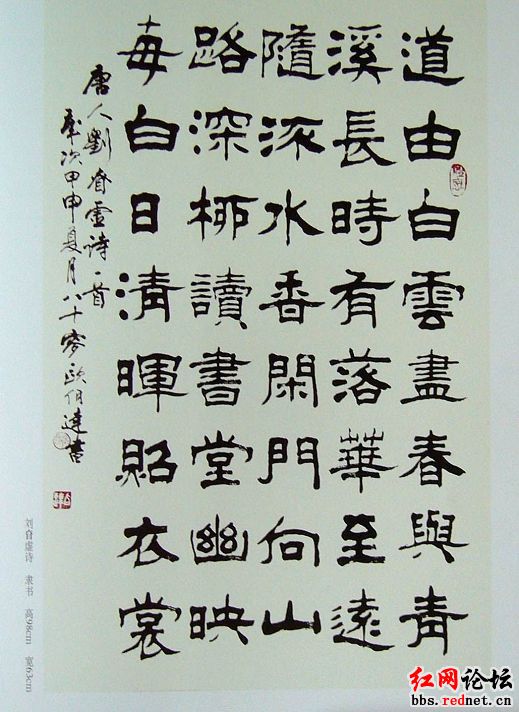 道由白雲盡春與青
溪長時有落華至遠
隨流水香閑門向山
路深柳讀書堂幽映
每白日清暉照衣裳
唐人劉眘虛詩一首
歲次甲申夏月八十歐伯達書
刘眘虚诗 隶书 高98cm 宽63cm
红网论坛
bbs.rednet.cn